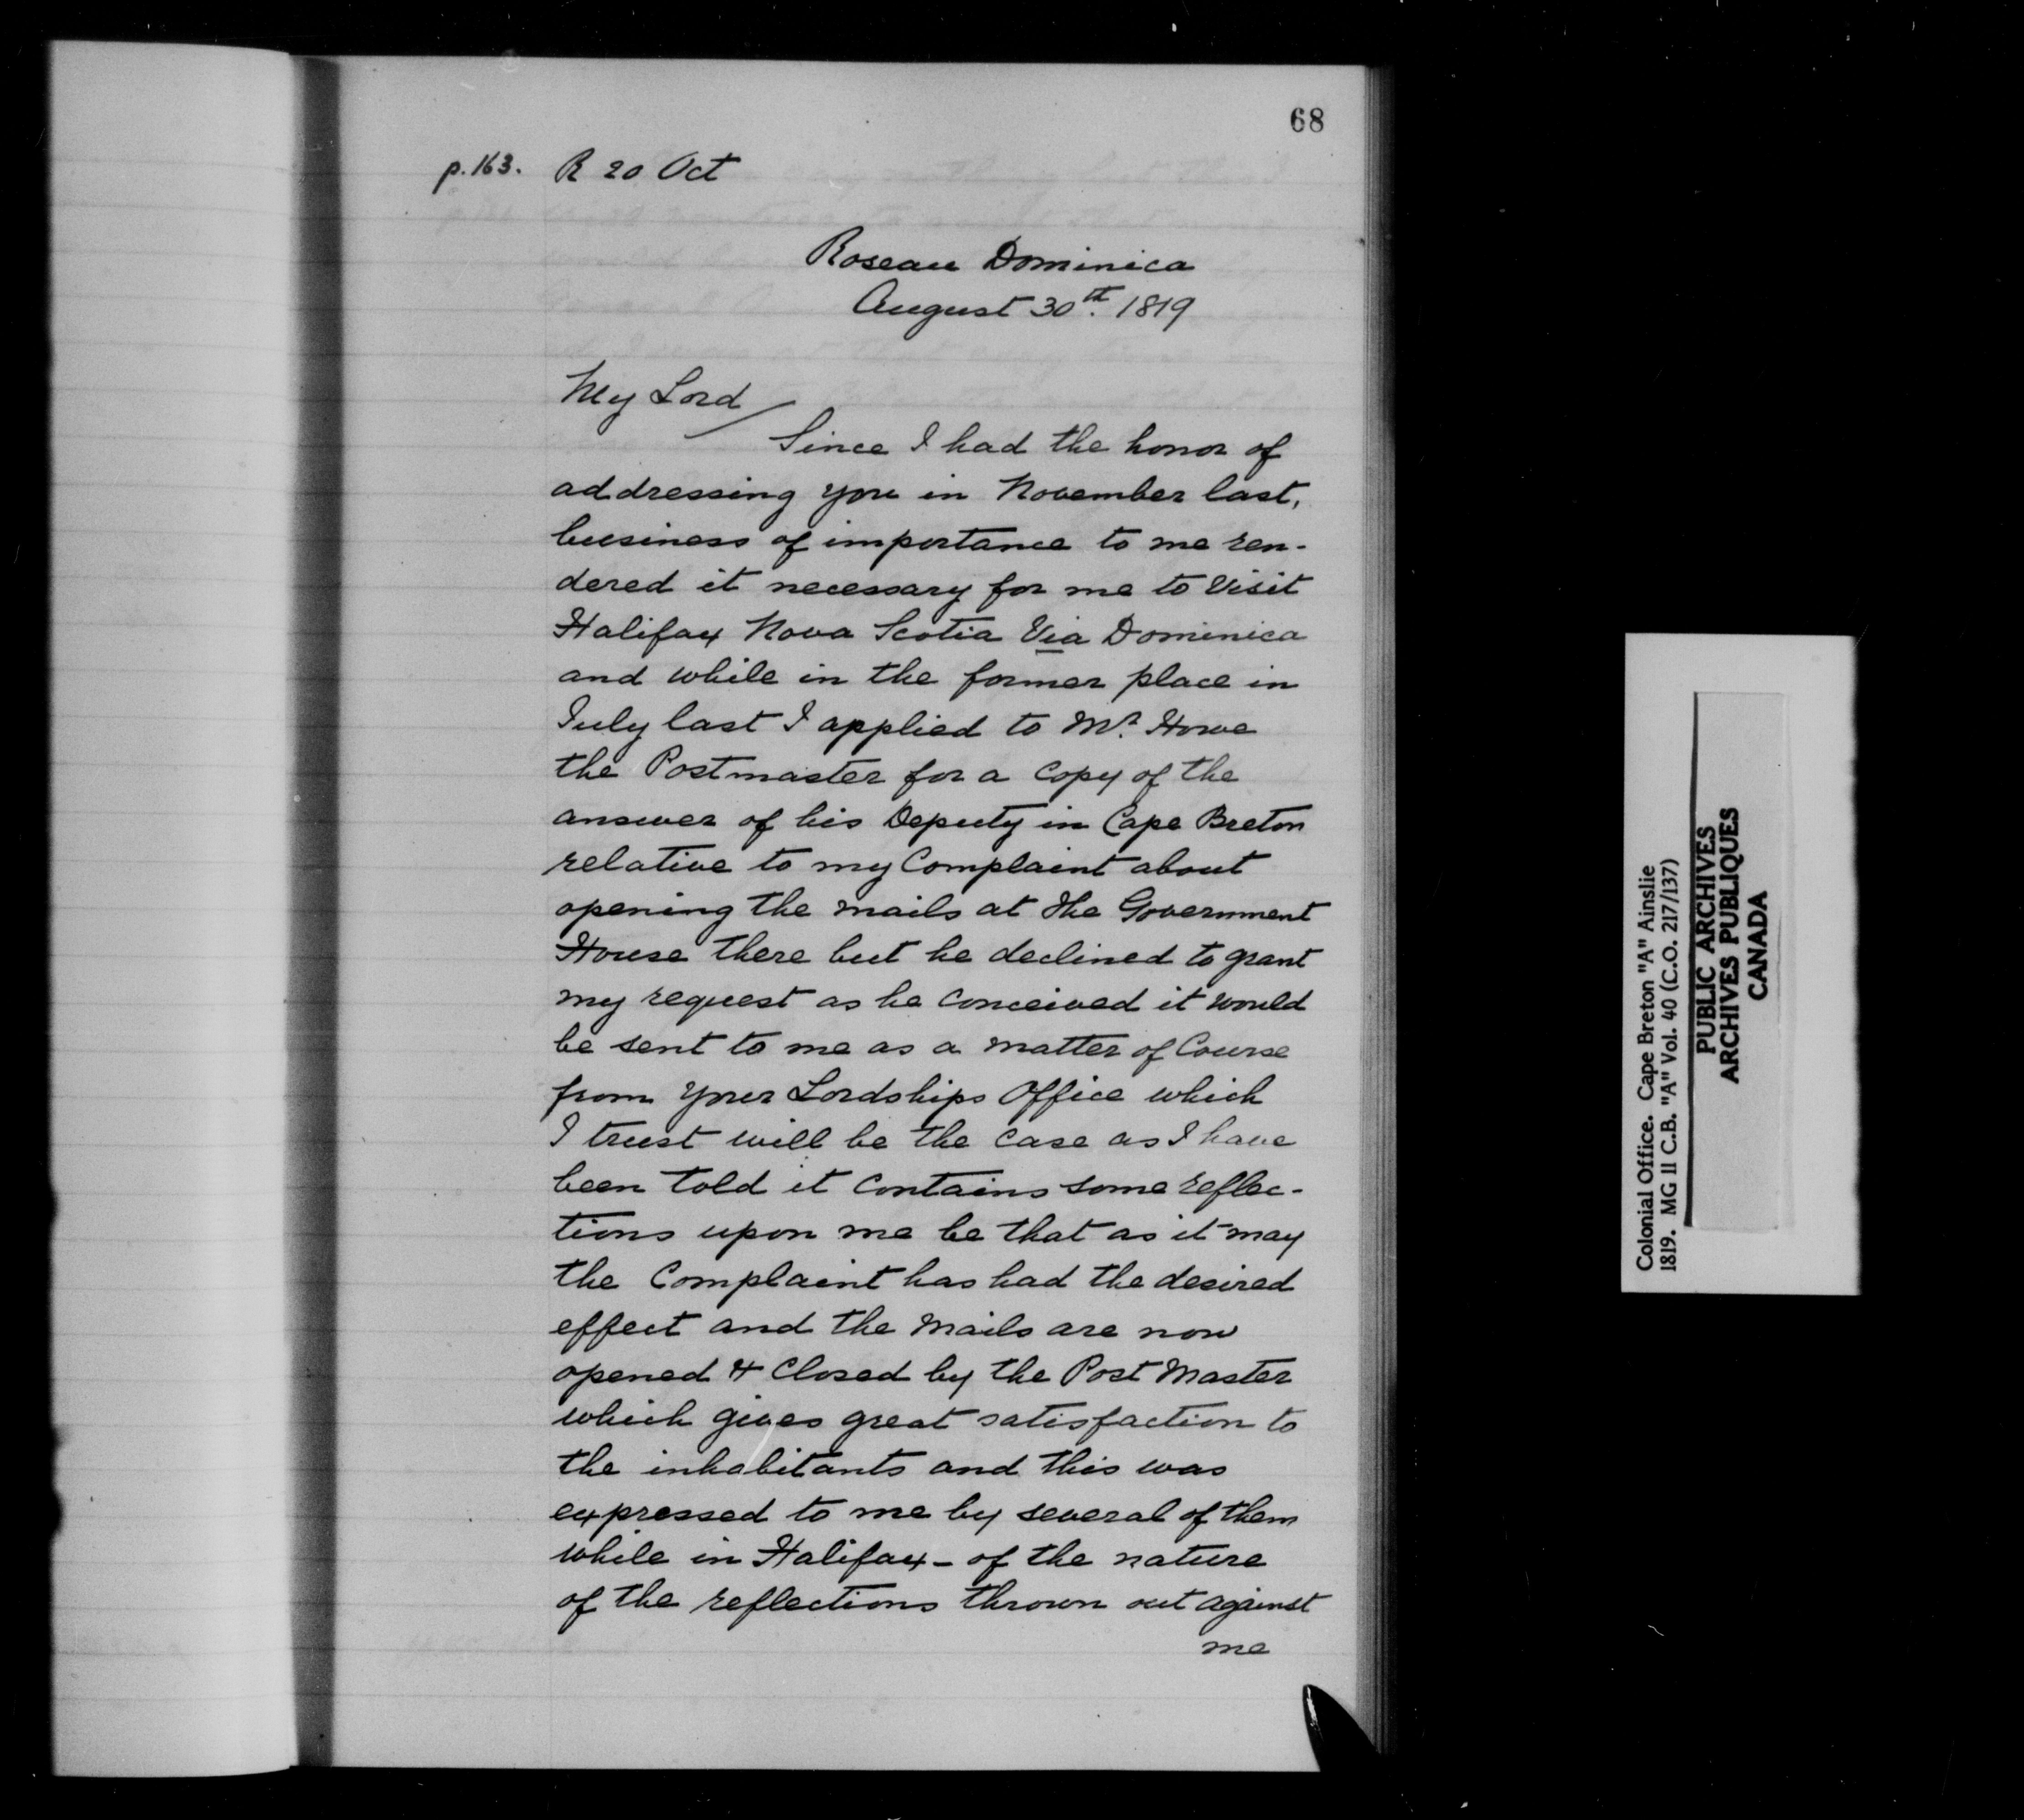 68
p.163. R 20 Oct
Roseau Dominica
August 30th. 1819
My Lord
Since I had the honor of
addressing you in November last,
business of importance to me ren-
dered it necessary for me to Visit
Halifax Nova Scotia Via Dominica
and while in the former place in
July last I applied to Mr. Howe
the Postmaster for a Copy of the
answer of his Deputy in Cape Breton
relative to my Complaint about
opening the mails at the Government
House there but he declined to grant
my request as he Conceived it would
be sent to me as a matter of Course
from your Lordships Office which
I trust will be the Case as I have
been told it Contains some reflec-
tions upon me be that as it may
the Complaint has had the desired
effect and the Mails are now
opened & Closed by the Post Master
which gives great satisfaction to
the inhabitants and this was
expressed to me by several of them
while in Halifax - of the nature
of the reflections thrown out against
me
Colonial Office. Cape Breton "A" Ainslie
1819. MG 11 C.B. "A" Vol. 40 (C.O. 217/137)
PUBLIC ARCHIVES
ARCHIVES PUBLIQUES
CANADA